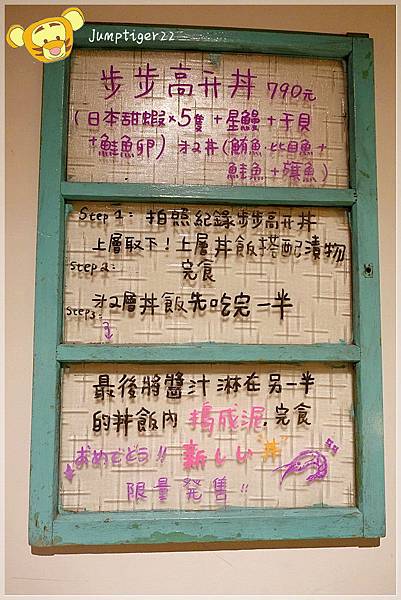 Jumptiger22
步步高升丼 790元
(日本甜蝦×5隻+星鰻+干貝
+鮭魚卵) 沙丼(鮪魚.比目魚+
鮭魚+旗魚)
Step 1: 拍照紀錄步步高升丼
上層取下!上層丼飯搭配漬物
Step 2: 完食
Step 3: 沙2層丼飯先吃完一半
最後將醬汁淋在另一半
的丼飯內 搗成泥,完食
おめでとう!! 新しい丼
限量発售!!